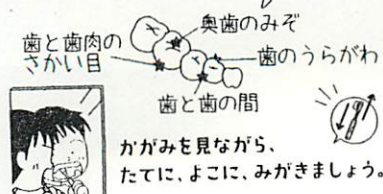 奥歯のみぞ
歯と歯肉の
さかい目
歯のうらがわ
歯と歯の間
かがみを見ながら、
たてに、よこに、みがきましょう。